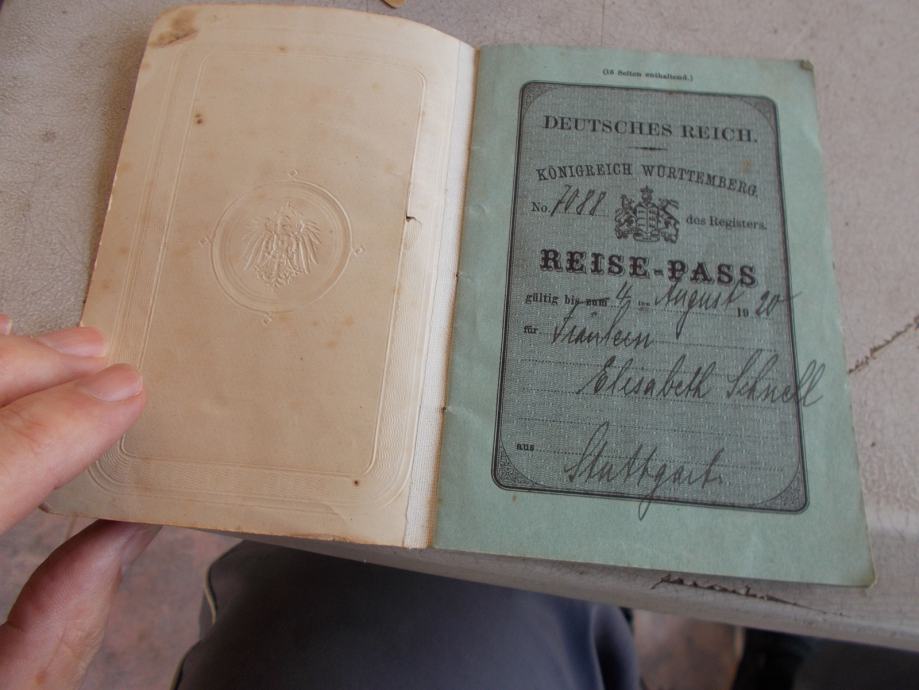 (16 Seiten enthaltend.)
DEUTSCHES REICH.
KÖNIGREICH WÜRTTEMBERG.
No. 7088 des Registers.
REISE-PASS
gültig bis zum 4 ten August 1920
für Fräulein
Elisabeth Schnell
aus Stuttgart.